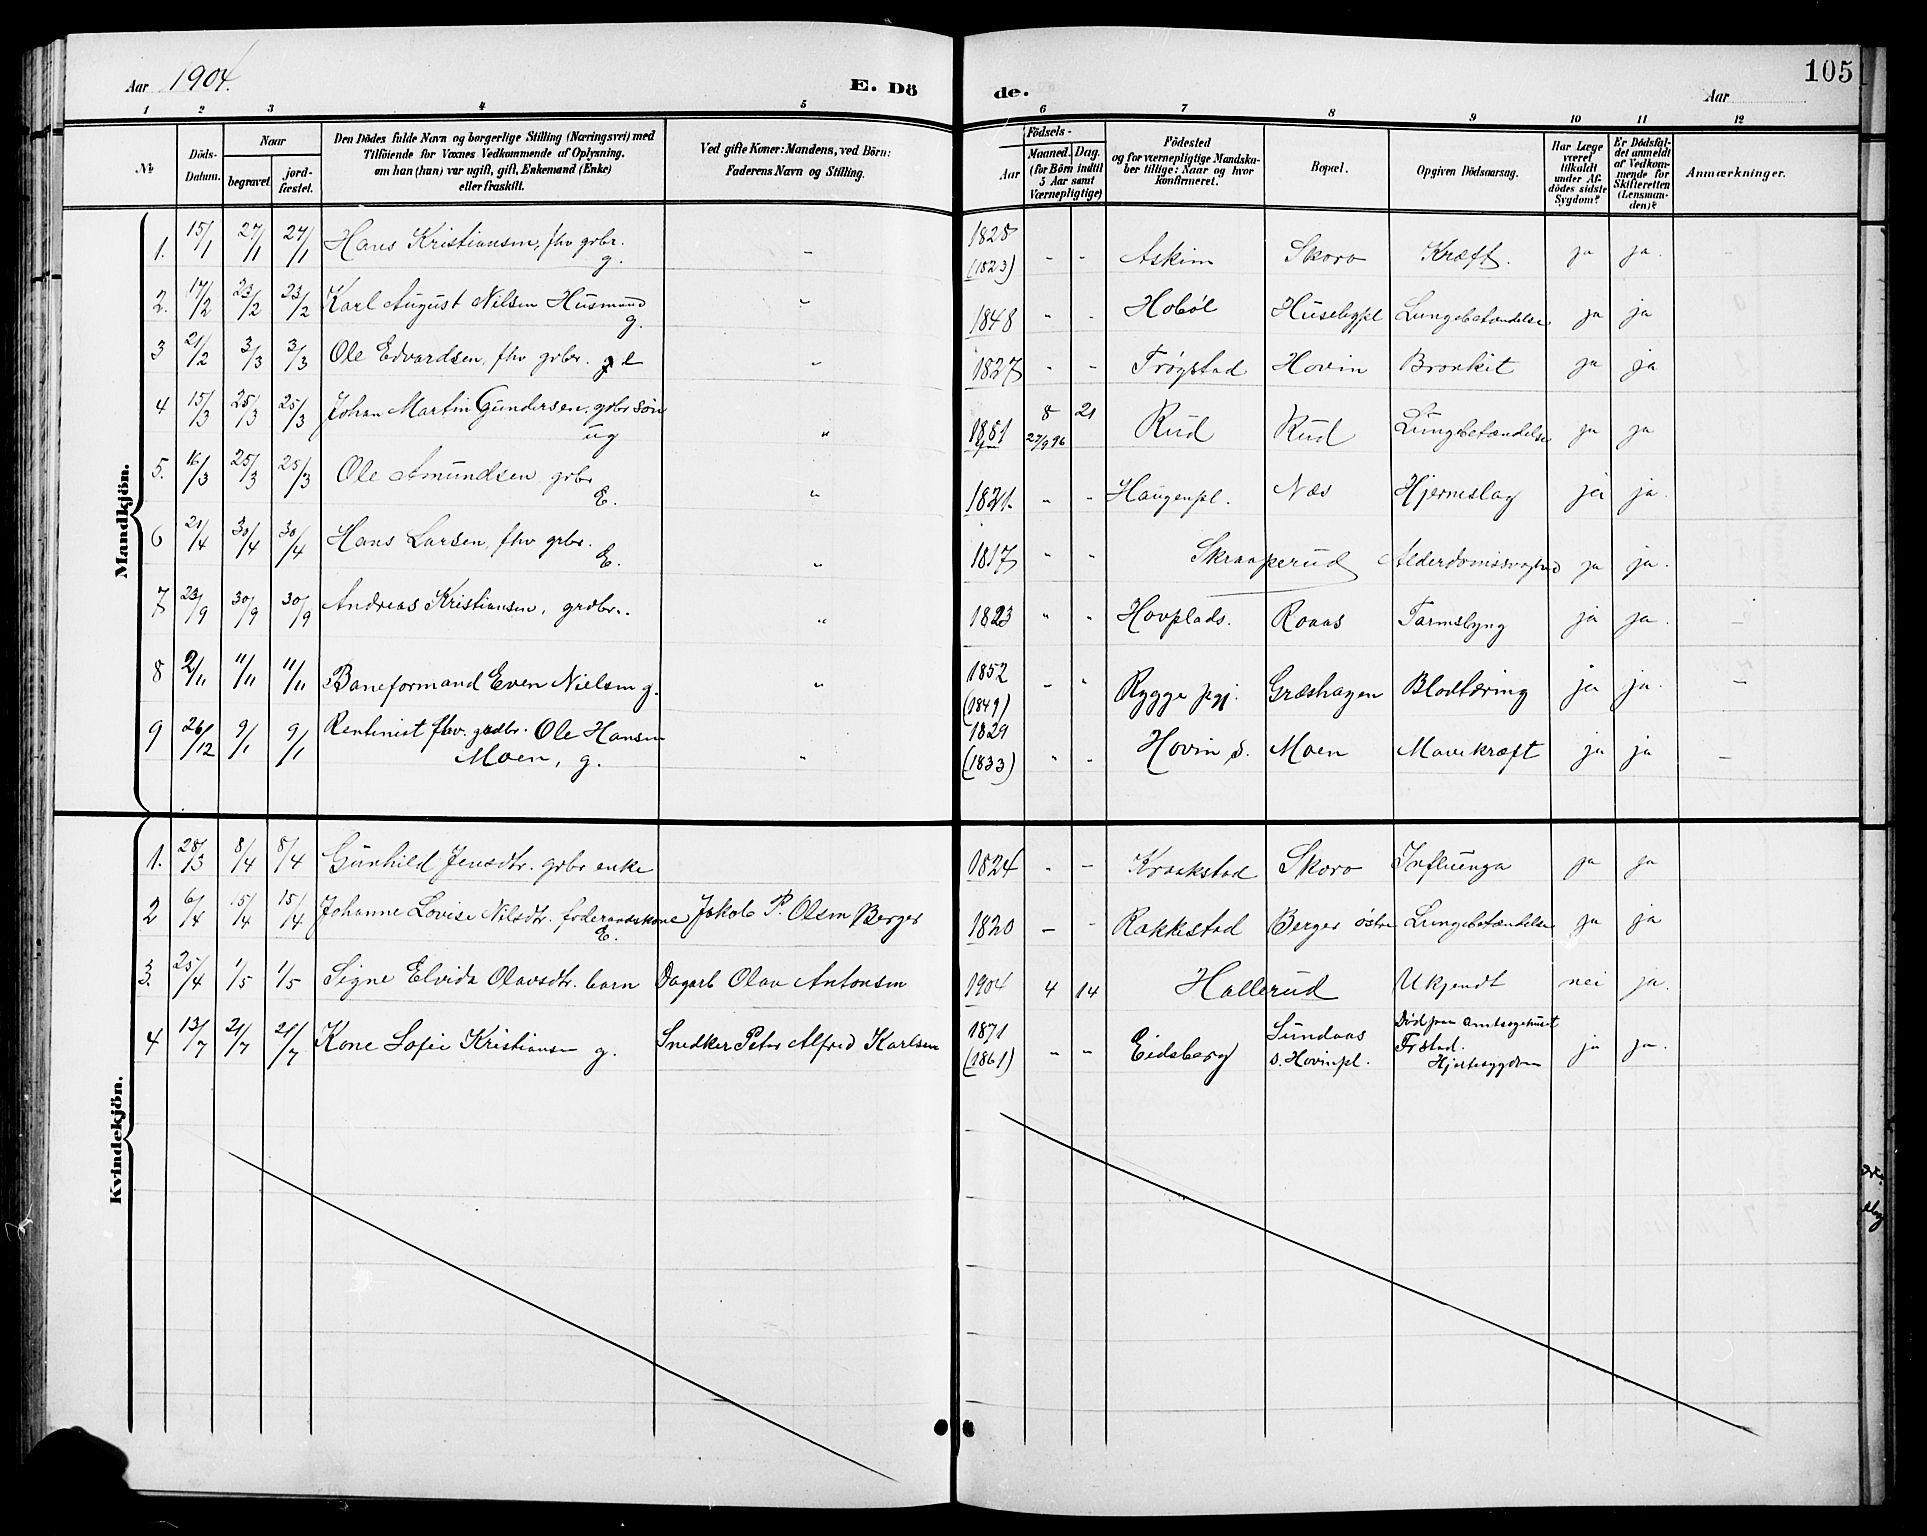 Aar 1904. E. Dö de. Aar 105
1 2 3 4 5 6 7 8 9 10 11 12
No
Döds-Datum.
Naar
begravet. jordfæstet.
Den Dödes fulde Navn og borgerlige Stilling (Næringsvei) med
Tilföiende for Voxnes Vedkommende af Oplysning,
om han (hun) var ugift, gift, Enkemand (Enke)
eller fraskilt.
Ved gifte Koner: Mandens, ved Börn:
Faderens Navn og Stilling.
Födsels-
Aar Maaned. Dag.
(for Börn indtil
5 Aar samt
Værnepligtige)
Födested
og for værnepligtige Mandska-
ber tillige: Naar og hvor
konfirmeret.
Bopæl.
Opgiven Dödsaarsag.
Har Læge
været
tilkaldt
under Af-
dödes sidste
Sygdom?
Er Dödsfal-
det anmeldt
af Vedkom-
mende for
Skifteretten
(Lensman-
den)?
Anmærkninger.
Mandkjön.
1. 15/1 27/1 27/1 Hans Kristiansen, fhv grbr. g. " 1828 (1823) " " Askim Skoro Kræft. ja ja. -
2. 17/2 23/2 23/2 Karl August Nilsen Husmand g. " 1848 " " Hobøl Husebypl Lungebetændelse ja ja
3 21/2 3/3 3/3 Ole Edvardsen, fhv grbr. e " 1827 " " Trøgstad Hovin Bronkit ja ja
4 15/3 25/3 25/3 Johan Martin Gundersen, grbr søn ug " 1881 8 21 27/9 96 Rud Rud Lungebetændelse ja ja
5. 16/3 25/3 25/3 Ole Amundsen grbr E. " 1821. " " Haugenpl. Næs Hjerneslag ja ja.
6 21/4 30/4 30/4 Hans Larsen, fhv grbr. E. " 1817 " " Skraaperud Alderdomssvaghed ja ja.
7 23/9 30/9 30/9 Andreas Kristiansen, grdbr. " 1823 " " Hovplads. Roaas Tarmslyng ja ja. -
8 2/11 11/11 11/11 Baneformand Even Nielsen g. " 1852 (1849) " " Rygge pgj. Græshagen Blodtæring ja ja. -
9 26/12 9/1 9/1 Rentenist fhv. grdbr. Ole Hansen
Moen, g. " 1829 (1833) " " Hovin, s. Moen Mavekræft ja ja -
Kvindekjön.
1. 28/3 8/4 8/4 Gunhild Jensdtr. grbr enke 1824 " - Kraakstad Skoro Influenza ja ja
2 6/4 15/4 15/4 Johanne Lovise Nilsdtr. foderaadskone E. Jakob P. Olsen Berger 1820 - " Rakkestad Berger østre Lungebetændelse ja ja
3. 25/4 1/5 1/5 Signe Elvida Olavsdtr. barn Dagarb Olav Antonsen 1904 4 14 Hallerud Ukjendt nei ja.
4 13/7 21/7 21/7 Kone Sofie Kristiansen g. Snedker Peter Alfred Karlsen 1871 (1861) " " Eidsberg Sundaas
s. Hovinpl. Død paa Amtssygehuset
Frstad.
Hjertesygdom ja ja.